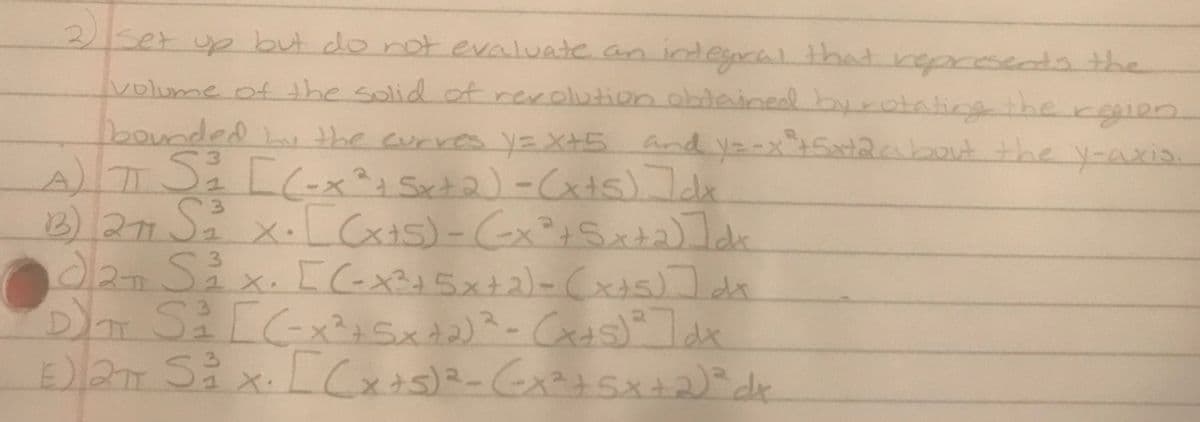 2) Set up but do not evaluate an integral that represents the
volume of the solid of revolution obtained by rotating the region
bounded by the curves y=x+5 and y=-x²+5x+2 about the y-axis.
A) π ∫₁³ [(-x²+5x+2)-(x+5)]dx
B) 2π ∫₁³ x·[(x+5)-(-x²+5x+2)]dx
C) 2π ∫₁³ x·[(-x²+5x+2)-(x+5)]dx
D) π ∫₁³ [(-x²+5x+2)²-(x+5)²]dx
E) 2π ∫₁³ x·[(x+5)²-(-x²+5x+2)² dx